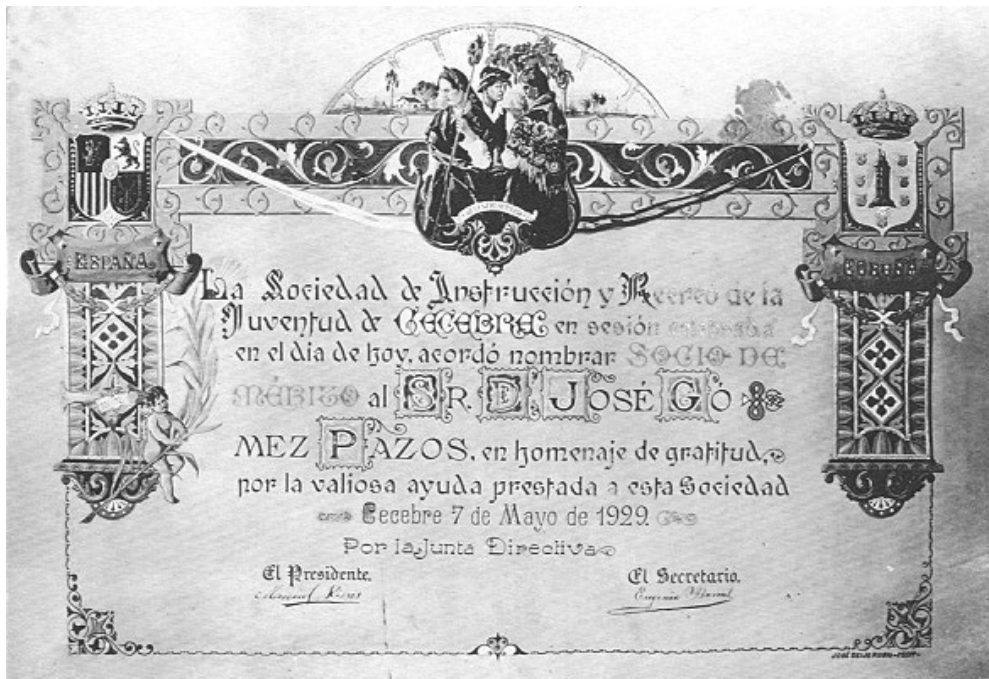 ESPAÑA
CORUÑA
La Sociedad de Instrucción y Recreo de la
Juventud de CECEBRE en sesión
en el día de hoy, acordó nombrar SOCIO DE
MÉRITO al SR. D. JOSÉ GÓ
MEZ PAZOS, en homenaje de gratitud,
por la valiosa ayuda prestada a esta Sociedad
Cecebre 7 de Mayo de 1929
Por la Junta Directiva
El Presidente.
El Secretario.